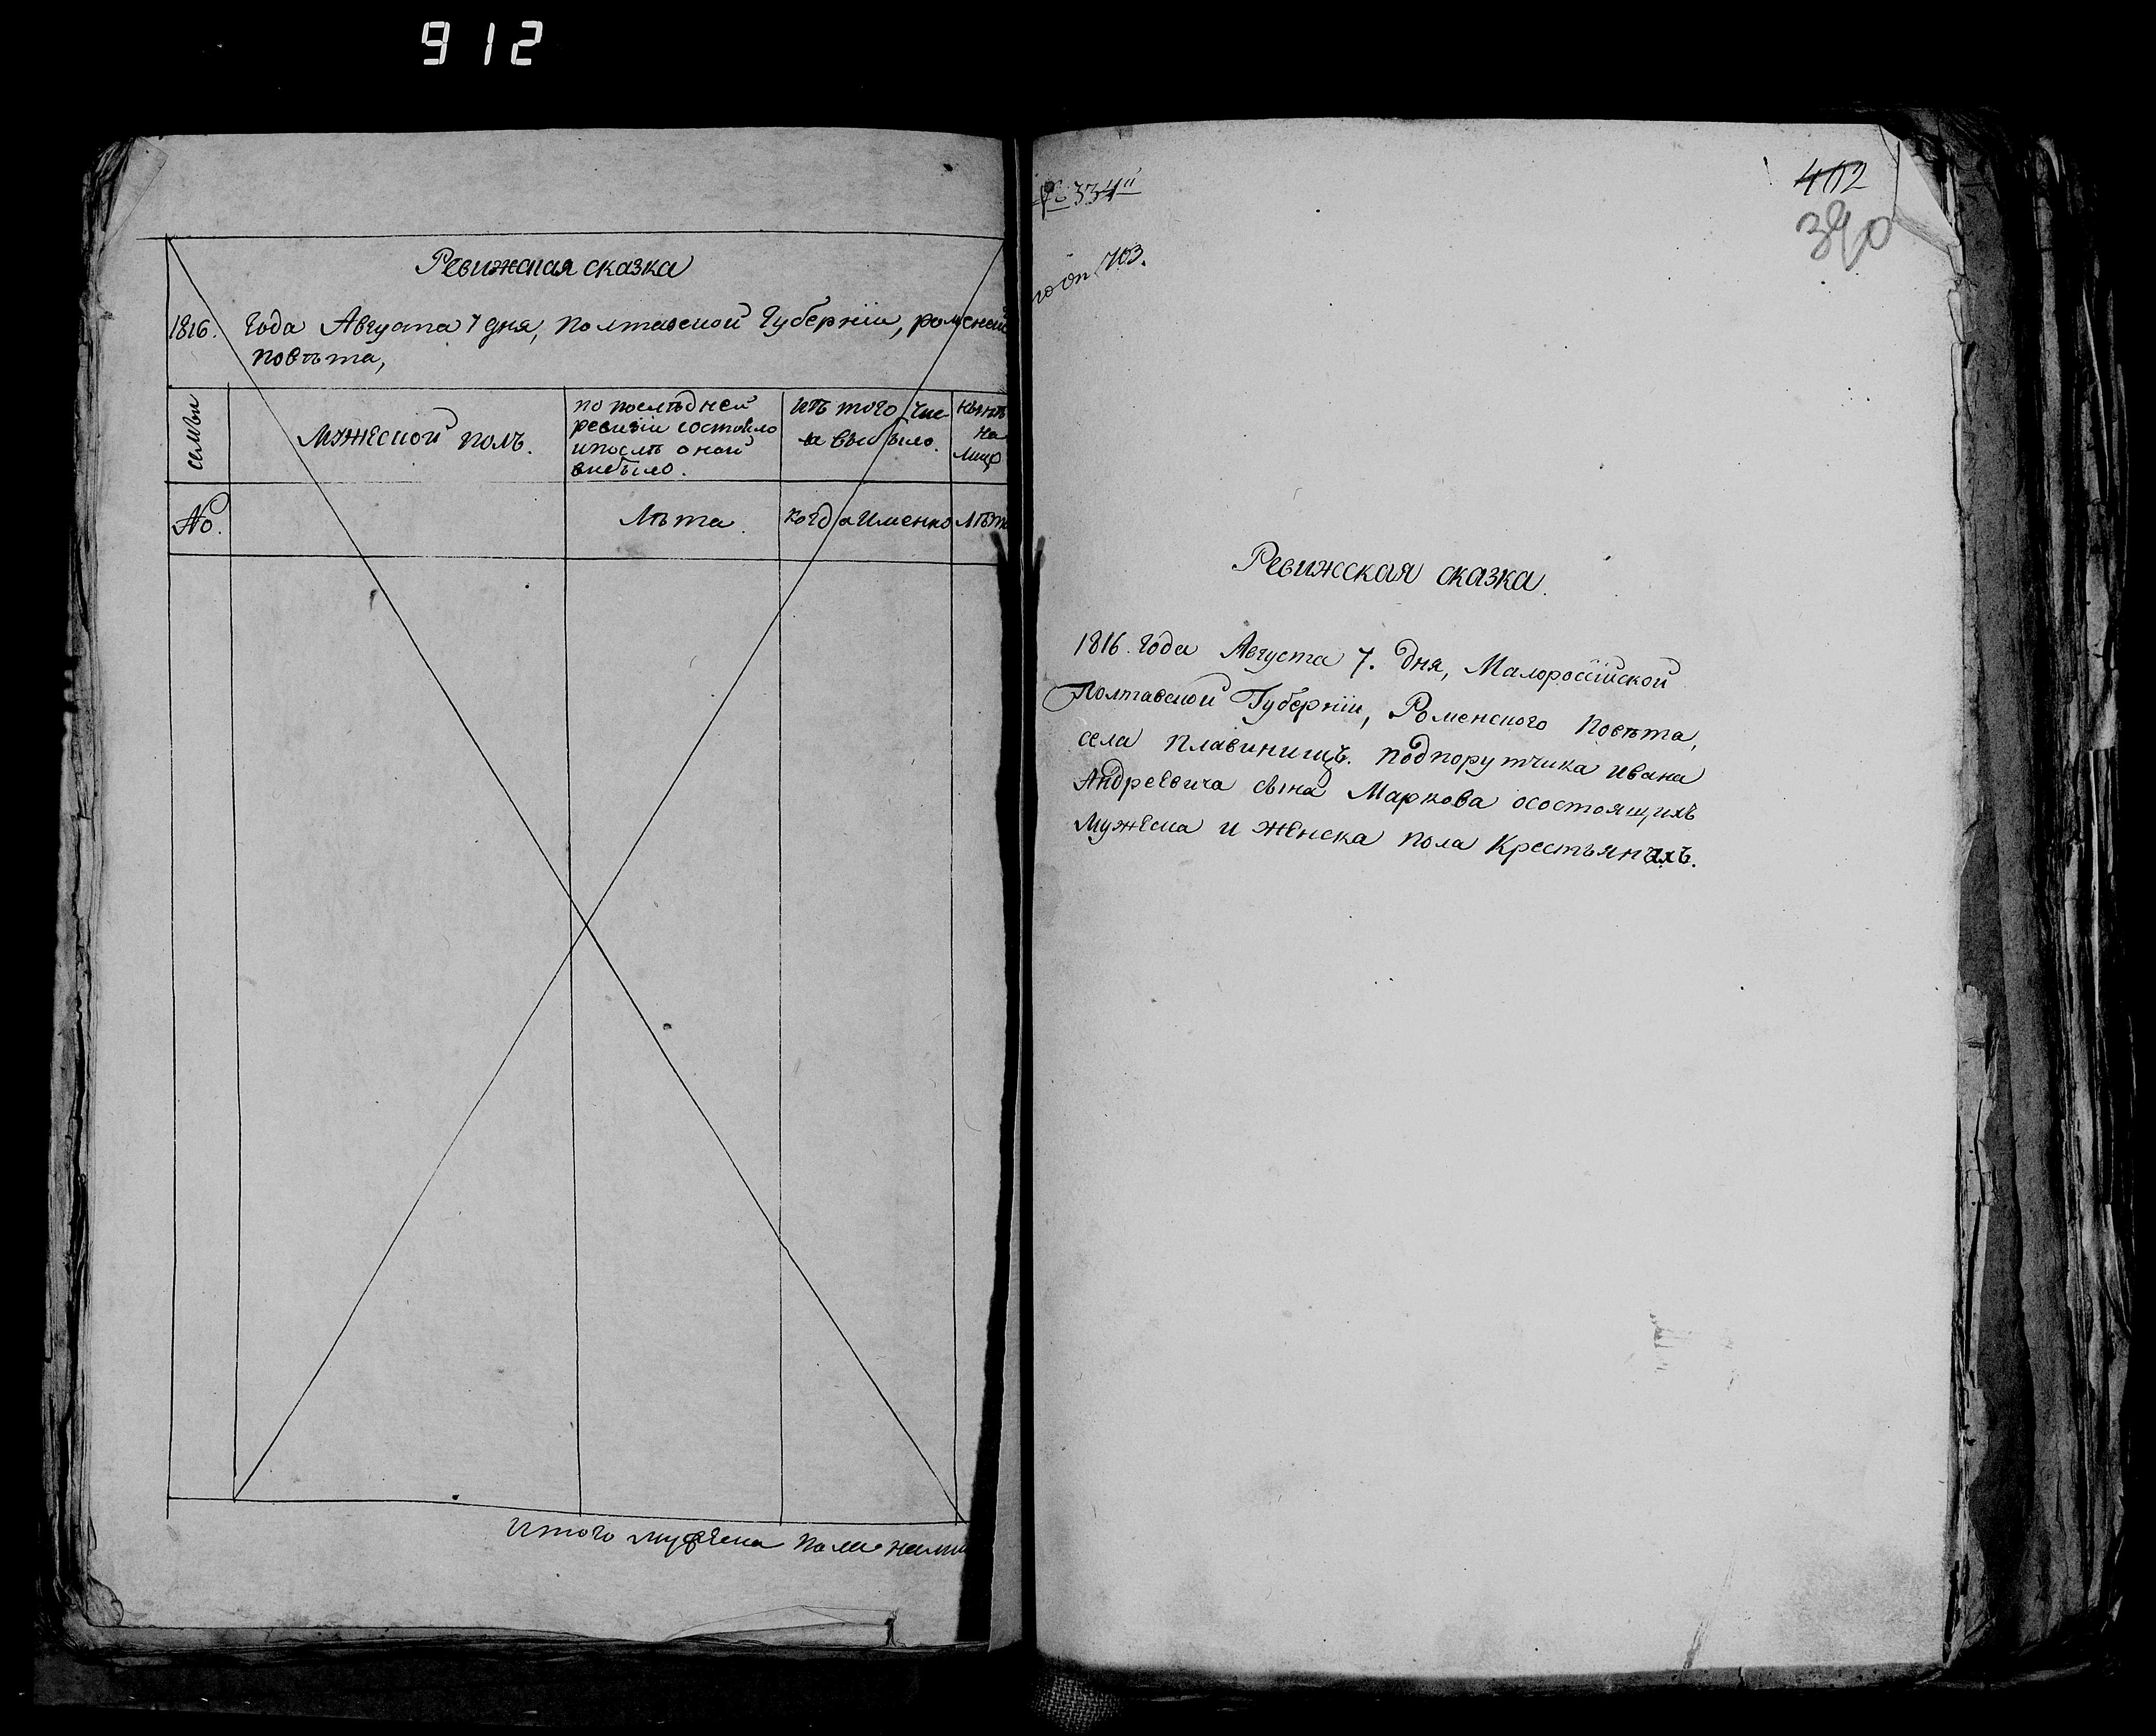 912
Ревижская сказка
1816. года Августа 7 дня, Полтавской Губерніи, роменско
повѣта,
семьи
Мужеской полъ.
по послѣдней
ревизіи состояло
и послѣ оной
выбыло.
изъ того чис-
ла выбыло.
нынѣ
на
лицо
No.
Лѣта.
когда именно
Лѣт
Итого мужеска пола нали
№ 334й
по оп 703.
402
390
Ревижская сказка.
1816. года Августа 7. дня, Малороссійской
Полтавской Губерніи, Роменского повѣта,
села Плавинищъ. подпорутчика ивана
Андреевича сына Маркова осостоящихъ
Мужеска и женска пола крестьянахъ.